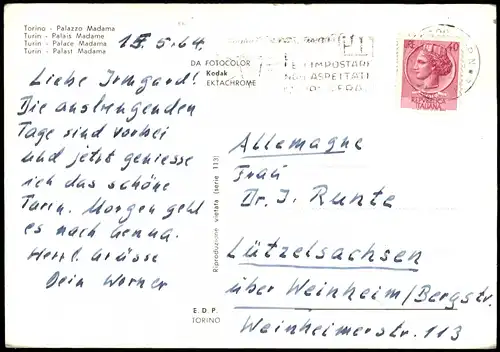 Torino - Palazzo Madama
Turin - Palais Madame
Turin - Palace Madama
Turin - Palast Madama
15.5.64.
Liebe Irmgard!
Die anstrengenden
Tage sind vorbei
und jetzt geniesse
ich das schöne
Turin. Morgen geht
es nach Genua.
Herzl. Grüsse
Dein Werner
DA FOTOCOLOR
Kodak
EKTACHROME
Riproduzione vietata (serie 113)
E. D. P.
TORINO
IMPOSTARE
NON ASPETTATE
SERA
40
REPUBBLICA
ITALIANA
Allemagne
Frau
Dr. I. Runte
Lützelsachsen
über Weinheim/Bergstr.
Weinheimerstr. 113